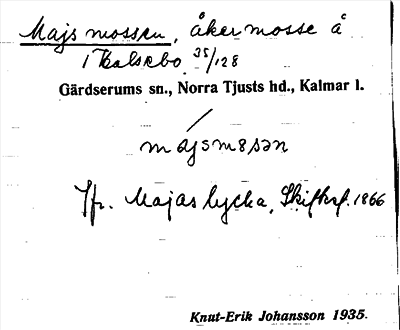 Majsmossen, åkermosse å
i Kalsebo 35/128
Gärdserums sn., Norra Tjusts hd., Kalmar l.
májsmosən
Jfr. Majas lycka, Skifteskf. 1866
Knut-Erik Johansson 1935.